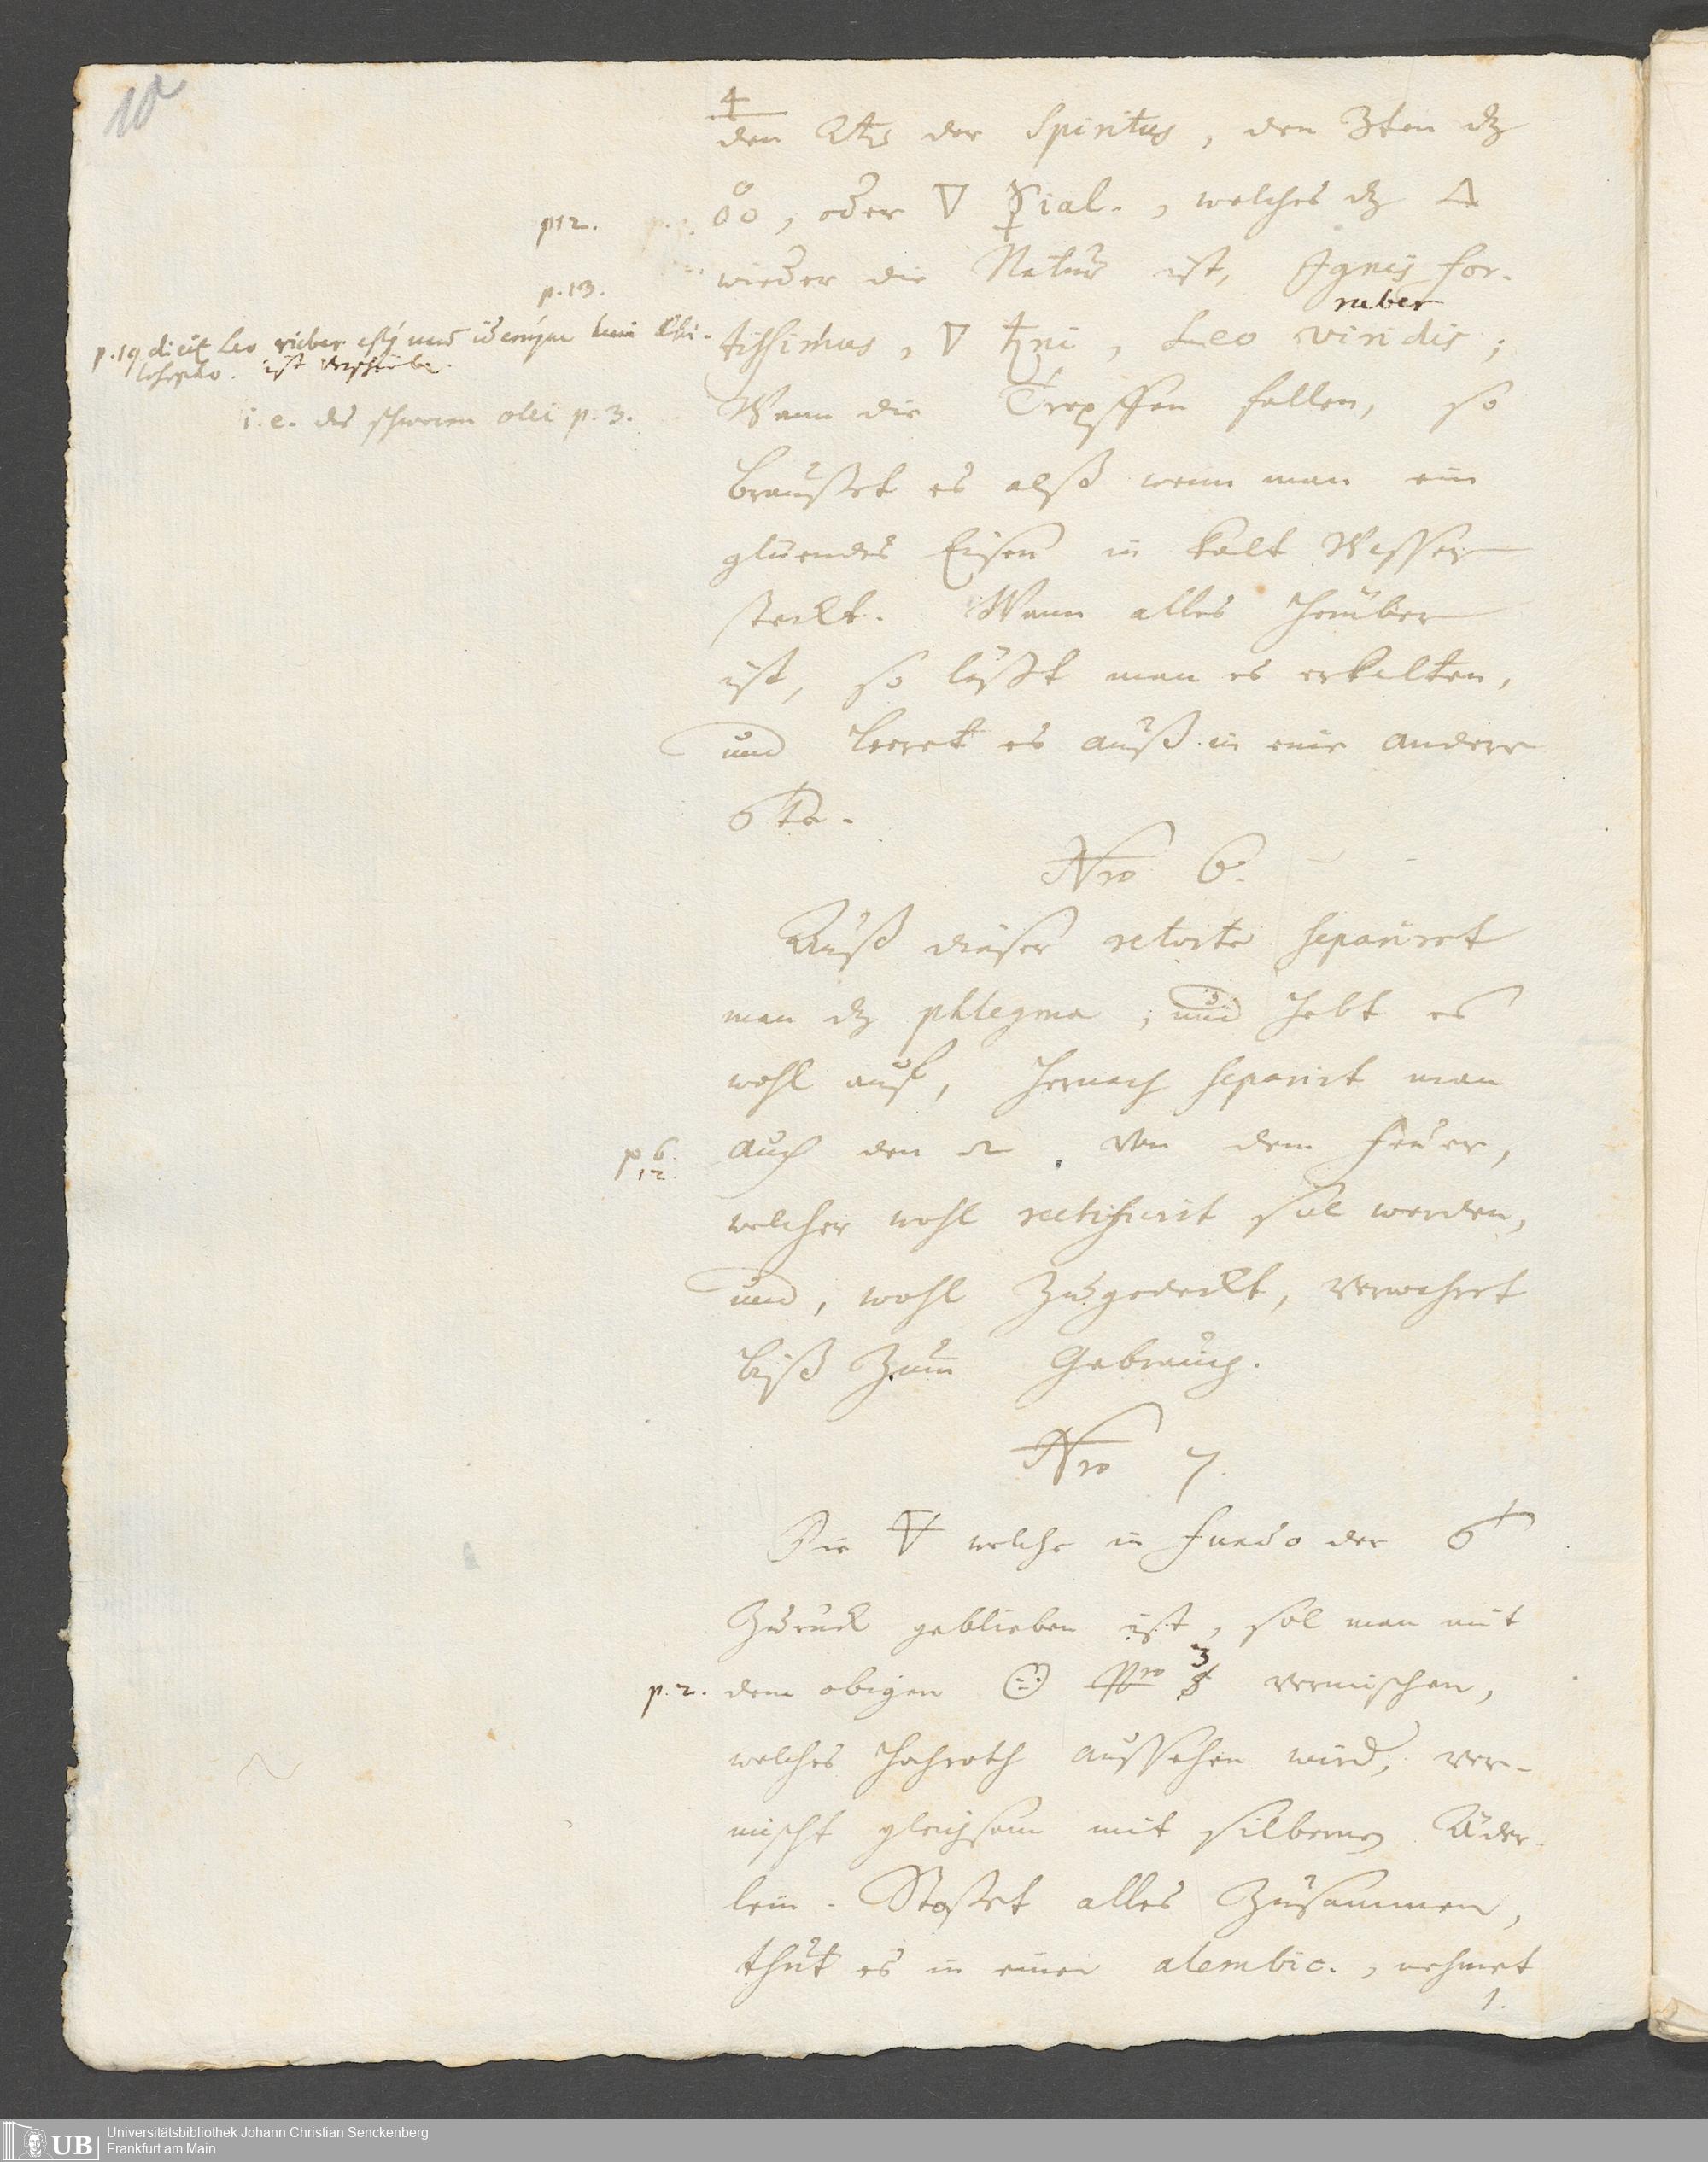 10
4
den 2ten der Spiritus, den 3ten dz
p12. oo, oder 🜄 ☿ial., welches dz 🜂
p.13. wieder die Natur ist, Ignis for-
ruber
p.19 dicit Leo ruber
tissimus, 🜄 ♄ni, Leo viridis;
ist
i.e. des schweren olei p.3.
Wann die Tropffen fallen, so
braußet es alß wenn man ein
gluendes Eisen in kalt Wasser
steckt. Wann alles herüber
ist, so läßt man es erkalten,
und leeret es auß in eine andere
Nro 6.
Auß dieser retorte separiret
man dz phlegma, und hebt es
wohl auf, hernach separirt man
p 6. 12. auch den von dem feuer,
welcher wohl rectificirt sol werden,
und, wohl zugedeckt, verwahret
biß zum Gebrauch.
Nro 7.
Die 🜃 welche in fundo der
zuruck geblieben ist, sol man mit
3
p.2. dem obigen Nro vermischen,
welches hochroth aussehen wird, ver-
mischt gleichsam mit silbernen Äder-
lein. Stoßet alles zusammen,
thut es in einen alembic., nehmet
1.
UB Universitätsbibliothek Johann Christian Senckenberg
Frankfurt am Main